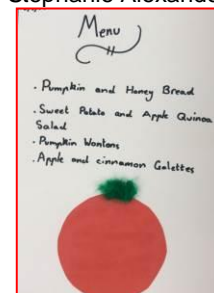 Stephanie Alexander
Menu
. Pumpkin and Honey Bread
. Sweet Potato and Apple Quinoa
Salad
. Pumpkin Wontons
. Apple and cinnamon Galettes